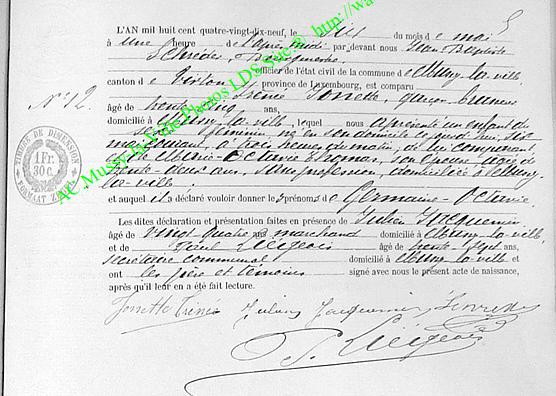 L'AN mil huit cent quatre-vingt-dix-neuf, le dix du mois de mai
à une heure de l'après-midi par devant nous Jean Baptiste
officier de l'état civil de la commune de Mussy-la-ville
canton de Virton, province de Luxembourg, est comparu
Nº 12.
Jonette, garçon brasseur
âgé de trente cinq ans,
domicilié à Mussy-la-ville, lequel nous a présenté un enfant de
sexe féminin, né en son domicile
courant, à trois heures du matin, de lui comparant,
et de Marie-Octavie Thomas, son épouse, âgée de
trente-deux ans, sans profession, domiciliée à Mussy-
la-ville
et auquel il a déclaré vouloir donner les prénoms de Germaine-Octavie.
Les dites déclaration et présentation faites en présence de Julien Jacquemin
âgé de vingt quatre ans marchand domicilié à Mussy-la-ville
et de Paul Liégeois âgé de trente-sept ans,
secrétaire communal domicilié à Mussy-la-ville et
ont les père et témoins signé avec nous le présent acte de naissance,
après qu'il leur en a été fait lecture.
TIMBRE DE DIMENSION
1 Fr.
30 c.
AC Mussy-la-Ville Photos LDS
Julien Jacquemin
P. Liégeois